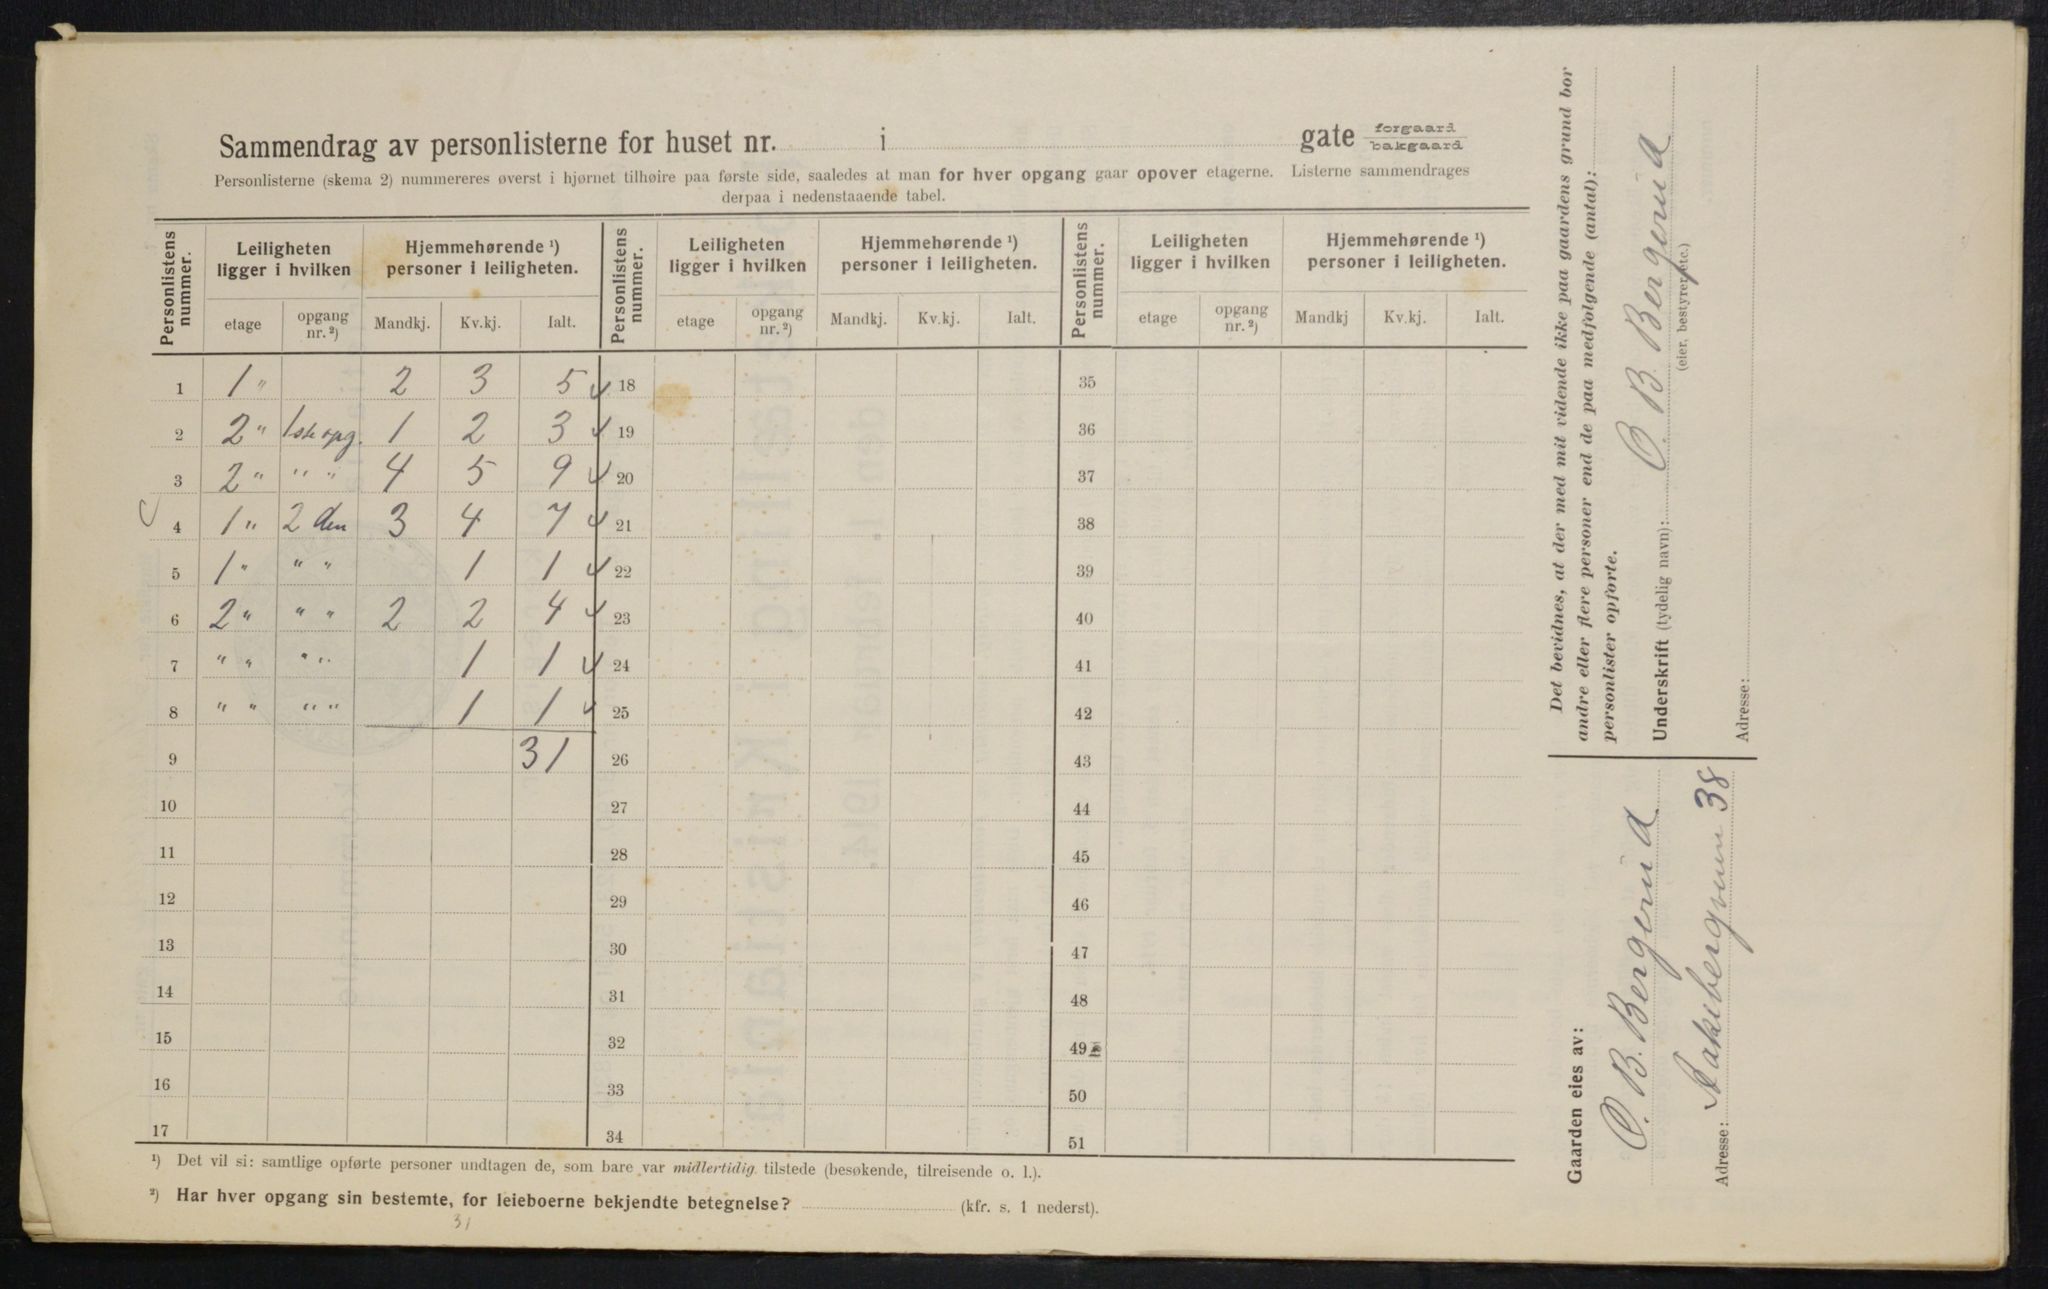 Sammendrag av personlisterne for huset nr. i gate forgaard bakgaard
Personlisterne (skema 2) nummereres øverst i hjørnet tilhøire paa første side, saaledes at man for hver opgang gaar opover etagerne. Listerne sammendrages
derpaa i nedenstaaende tabel.
Personlistens nummer. Leiligheten ligger i hvilken Hjemmehørende ¹) personer i leiligheten. Personlistens nummer. Leiligheten ligger i hvilken Hjemmehørende ¹) personer i leiligheten. Personlistens nummer. Leiligheten ligger i hvilken Hjemmehørende ¹) personer i leiligheten.
etage opgang nr. ²) Mandkj. Kv.kj. Ialt. etage opgang nr. ²) Mandkj. Kv.kj. Ialt. etage opgang nr. ²) Mandkj Kv.kj. Ialt.
1 1 " 2 3 5 ✓ 18 35
2 2 " 1ste opg. 1 2 3 ✓ 19 36
3 2 " " " 4 5 9 ✓ 20 37
4 1 " 2 den 3 4 7 ✓ 21 38
5 1 " " " 1 1 ✓ 22 39
6 2 " " " 2 2 4 ✓ 23 40
7 " " " " 1 1 ✓ 24 41
8 " " " " 1 1 ✓ 25 42
9 31 26 43
10 27 44
11 28 45
12 29 46
13 30 47
14 31 48
15 32 49
16 33 50
17 34 51
¹) Det vil si: samtlige opførte personer undtagen de, som bare var midlertidig tilstede (besøkende, tilreisende o. l.).
²) Har hver opgang sin bestemte, for leieboerne bekjendte betegnelse? (kfr. s. 1 nederst).
31
Det bevidnes, at der med mit vidende ikke paa gaardens grund bor
andre eller flere personer end de paa medfølgende (antal):
personlister opførte.
Underskrift (tydelig navn): O. B. Bergerud
(eier, bestyrer etc.)
Adresse:
Gaarden eies av:
O. B. Bergerud
Adresse: Aakebergveien 38